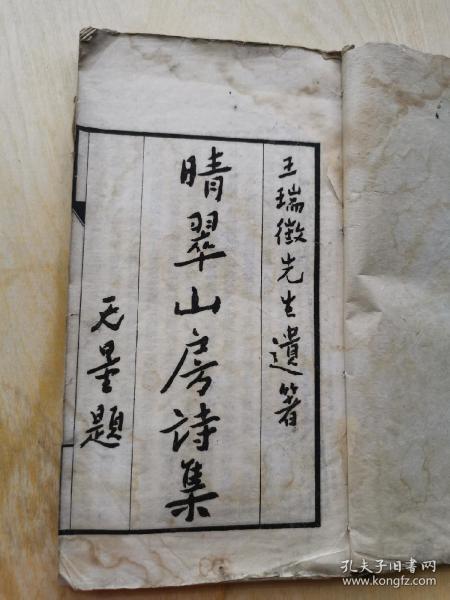 王瑞徵先生遺著
晴翠山房詩集
无量題
孔夫子旧书网
www.kongfz.com